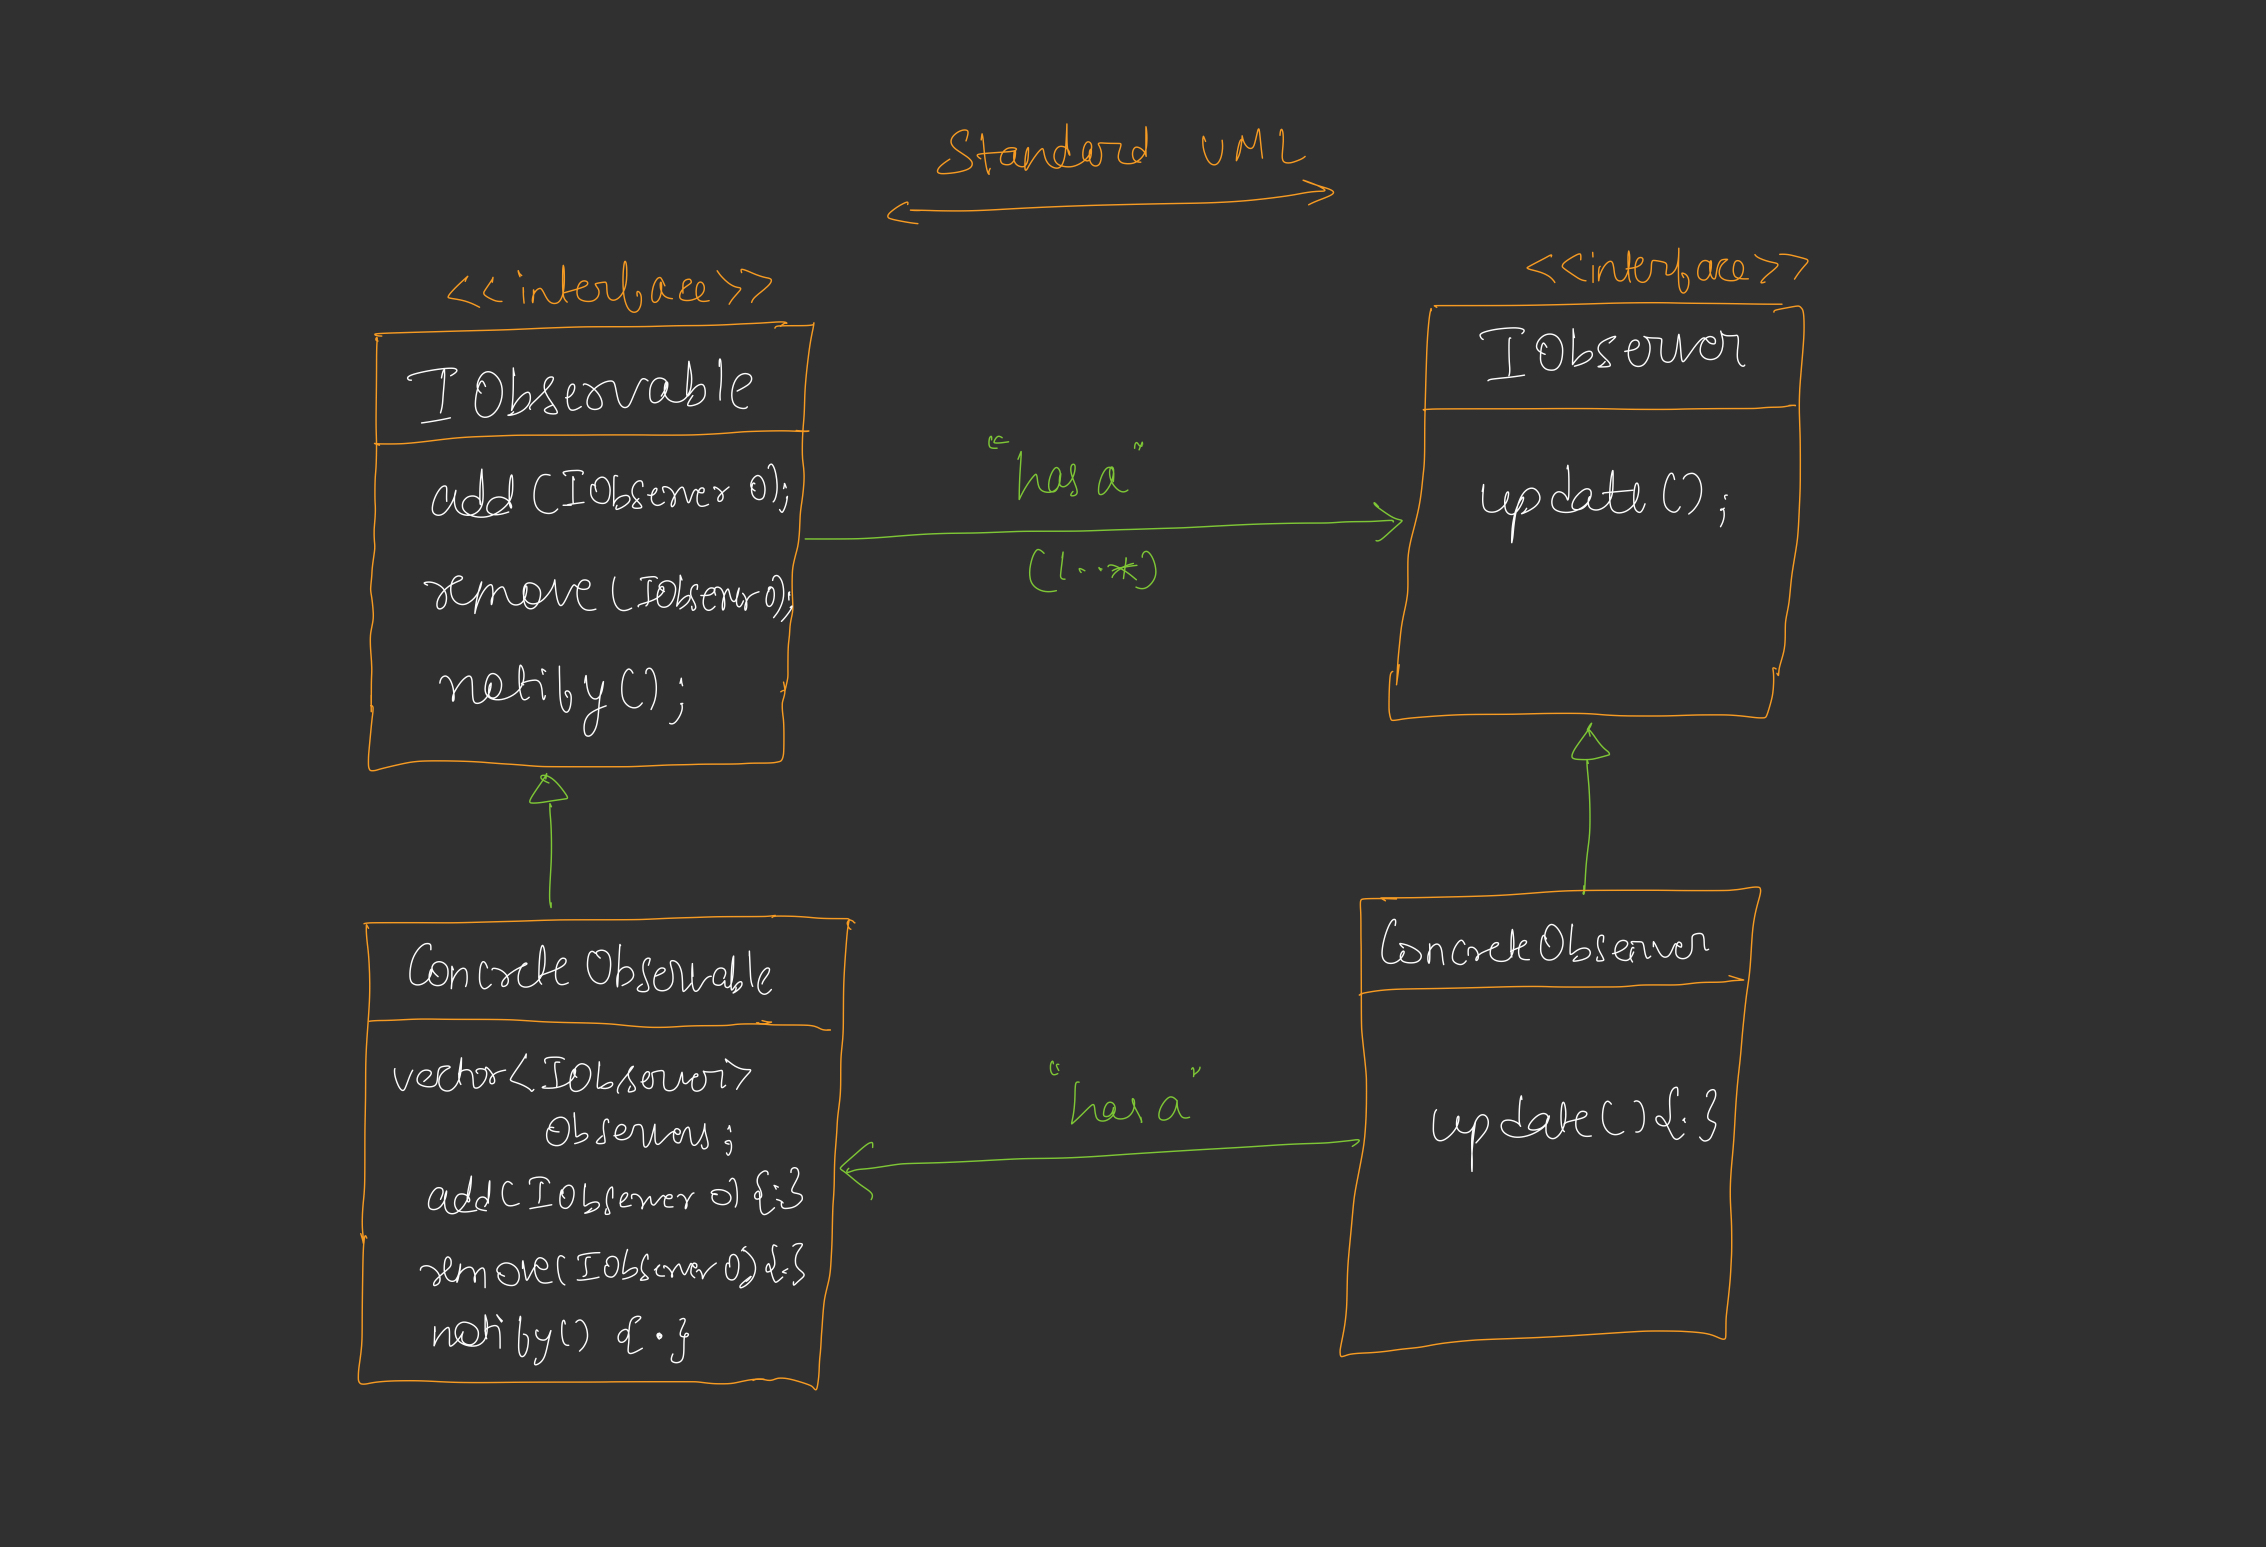 Standard UML
<<interface>>
IObservable
add(IObserver o);
remove(IObserver o);
notify();
"has a"
(1..*)
<<interface>>
IObserver
update();
ConcreteObservable
vector<IObserver>
Observers;
add(IObserver o){:}
remove(IObserver o){:}
notify() {.}
"has a"
ConcreteObserver
update(){:}